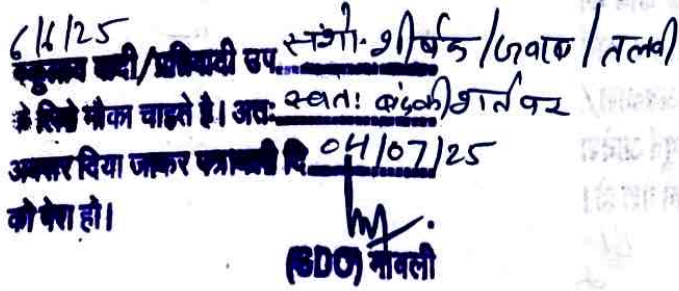 6/6/25
वकुलाय वादी/प्रतिवादी उप. संशो. शीर्षक/जवाब/तलवी
के लिये मौका चाहते है। अतः स्वतः बंदकी शर्त पर
अवसर दिया जाकर पत्रावली दि 04/07/25
को पेश हो।
(SDO) मावली